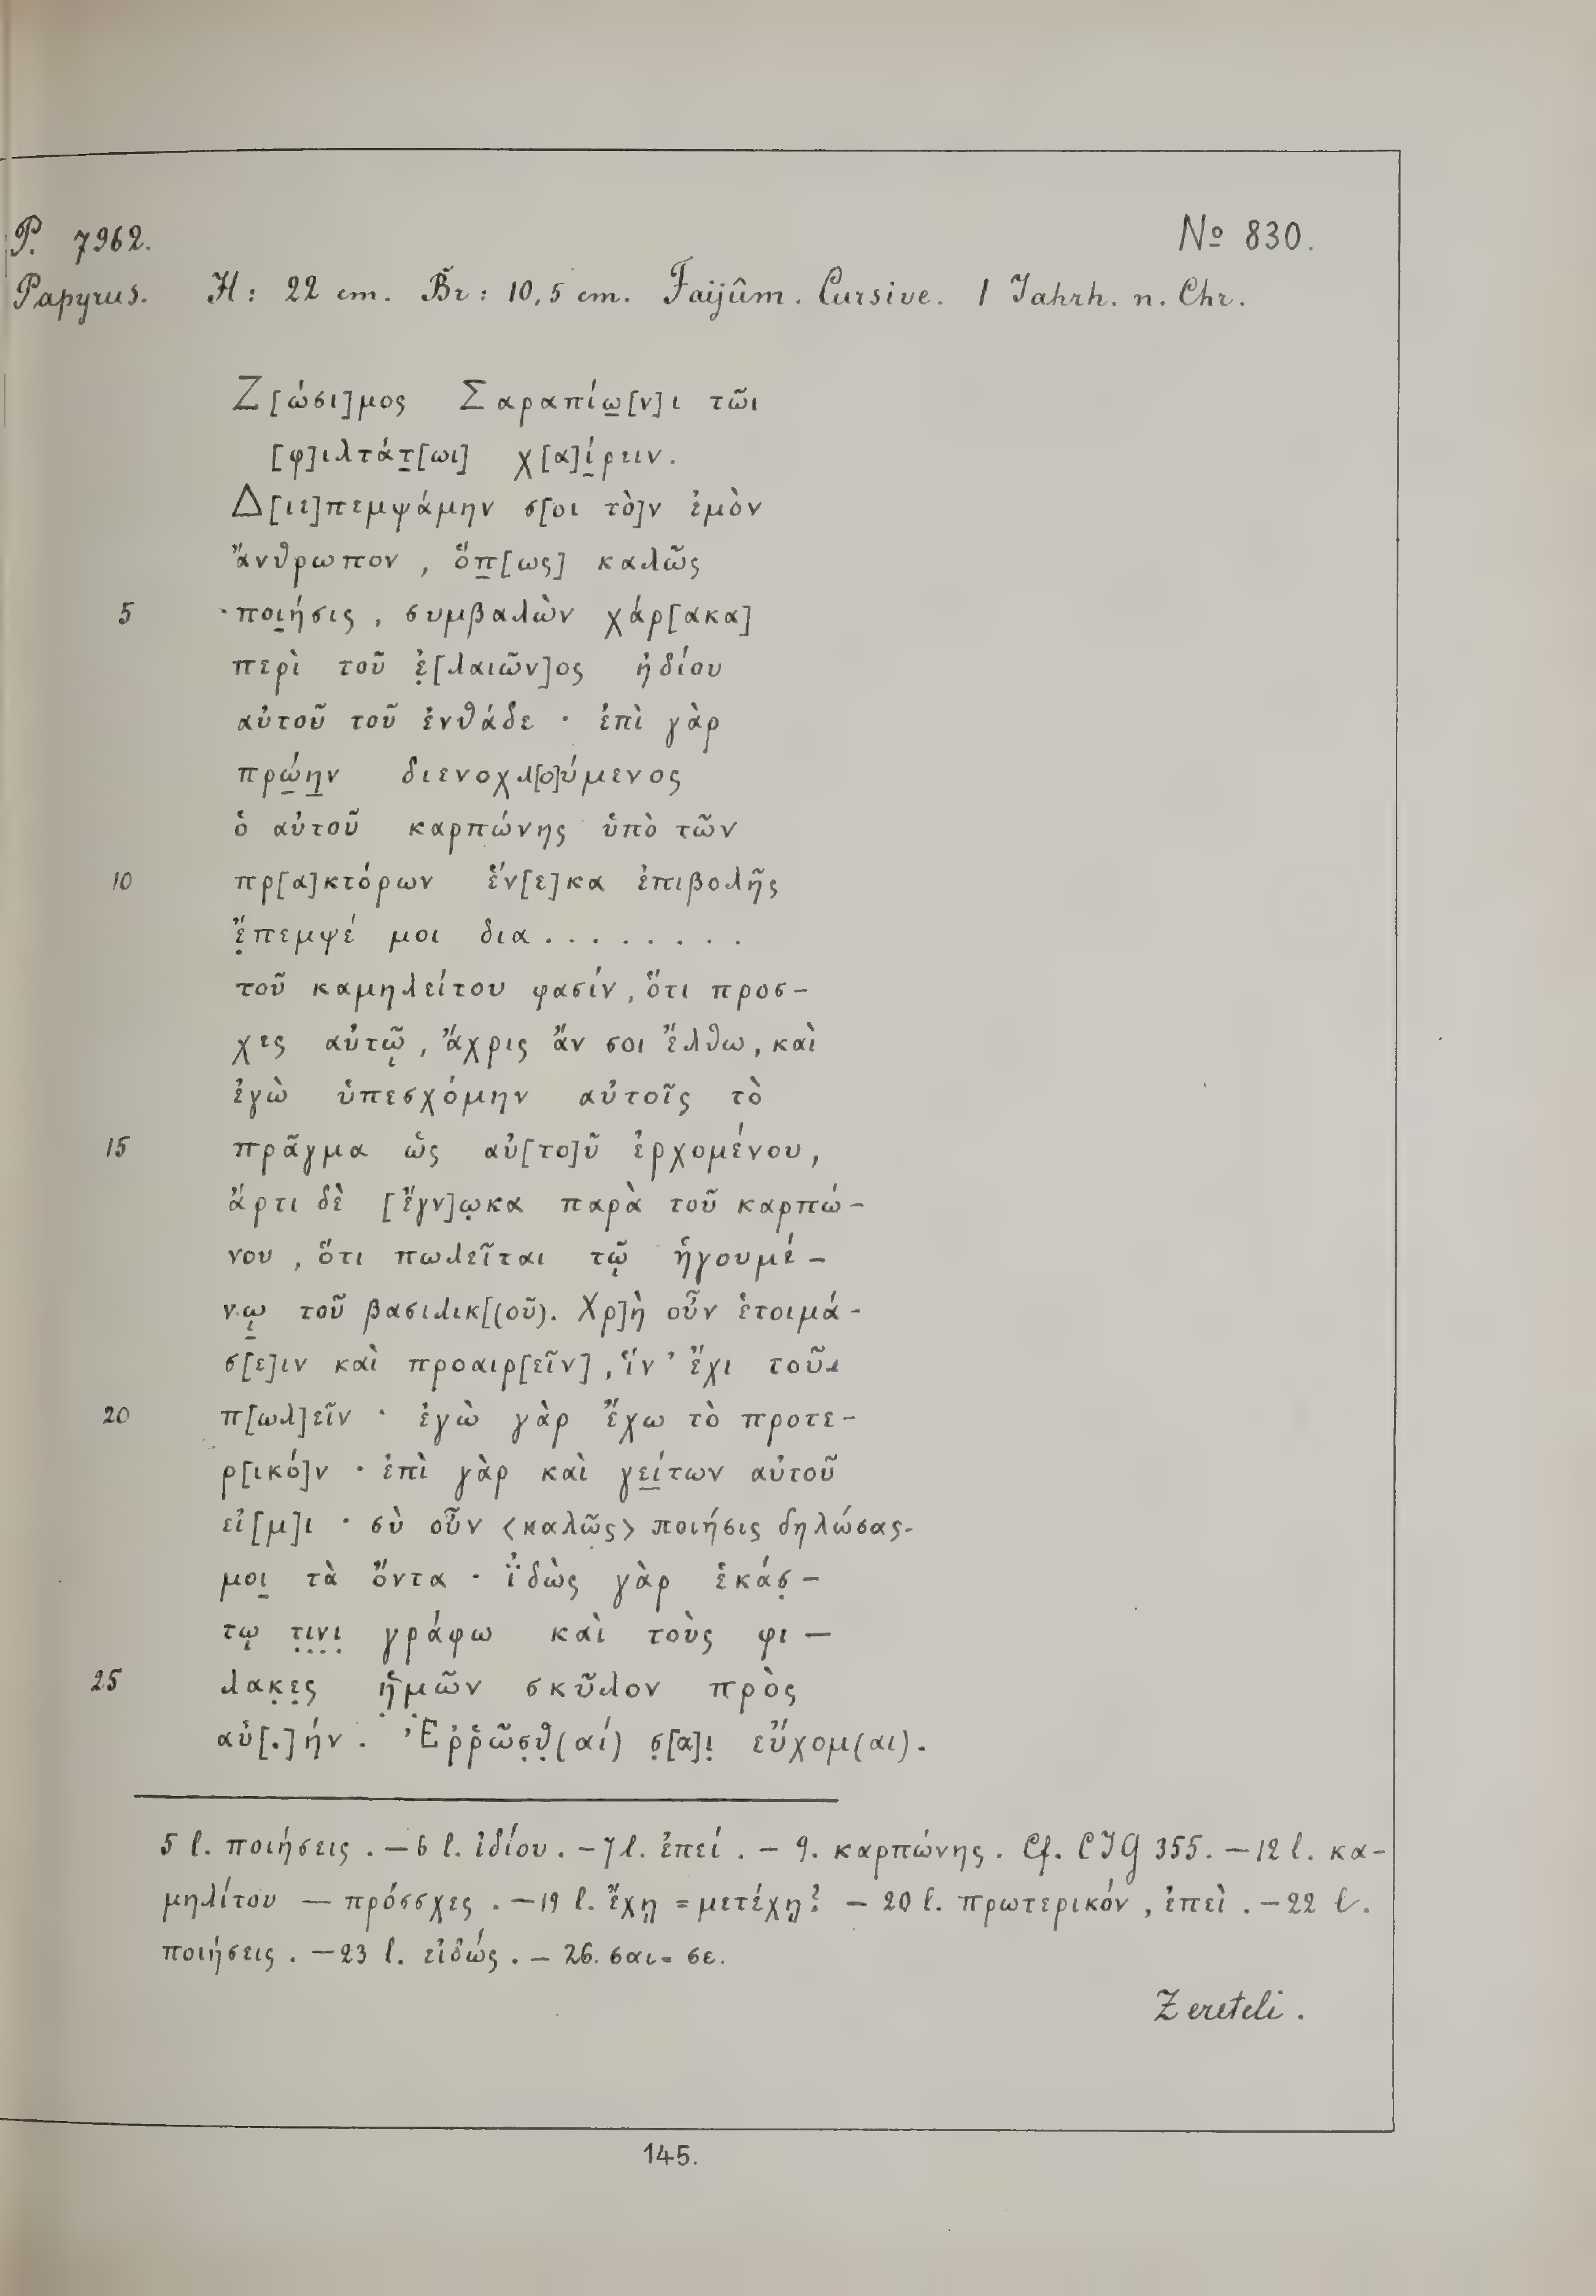 P. 7962. № 830.
Papyrus. H: 22 cm. Br: 10,5 cm. Faijûm. Cursive. I Jahrh. n. Chr.
Ζ[ώσι]μος Σαραπίω̣[ν]ι τῶι
[φ]ιλτάτ̣[ωι] χ[α]ί̣ρειν.
Δ[ιε]πεμψάμην σ[οι τὸ]ν ἐμὸν
ἄνθρωπον, ὅπ̣[ως] καλῶς
5 ποι̣ήσις, συμβαλὼν χάρ[ακα]
περὶ τοῦ ἐ̣[λαιῶν]ος ἠδίου
αὐτοῦ τοῦ ἐνθάδε · ἐπὶ γὰρ
πρώ̣η̣ν διενοχλ[ο]ύμενος
ὁ αὐτοῦ καρπώνης ὑπὸ τῶν
10 πρ[α]κτόρων ἕν[ε]κα ἐπιβολῆς
ἔ̣πεμψέ μοι δια . . . . . . . .
τοῦ καμηλείτου φασίν, ὅτι προσ-
χες αὐτῷ, ἄχρις ἄν σοι ἔλθω, καὶ
ἐγὼ ὑπεσχόμην αὐτοῖς τὸ
15 πρᾶγμα ὡς αὐ[το]ῦ ἐρχομένου,
ἄρτι δὲ [ἔγν]ω̣κα παρὰ τοῦ καρπώ-
νου, ὅτι πωλεῖται τῷ ἡγουμέ-
νῳ̣ τοῦ βασιλικ[(οῦ). Χρ]ὴ οὖν ἑτοιμά-
σ[ε]ιν καὶ προαιρ[εῖν], ἵν' ἔχι τοῦ
20 π[ωλ]εῖν · ἐγὼ γὰρ ἔχω τὸ προτε-
ρ[ικό]ν · ἐπὶ γὰρ καὶ γε̣ί̣των αὐτοῦ
εἰ[μ]ι · σὺ οὖν <καλῶς> ποιήσις δηλώσας
μοι̣ τὰ ὄντα · ἰ̈δὼς γὰρ ἑκάσ̣-
τῳ τ̣ι̣ν̣ι̣ γράφω καὶ τοὺς φι-
25 λακ̣ε̣ς ἡ̣μῶν σκῦλον πρὸς
αὐ[.]ήν. Ἐρ̣ῥῶσ̣θ̣(αί) σ̣[α]ι̣ εὔχομ(αι).
5 l. ποιήσεις. — 6 l. ἰδίου. — 7 l. ἐπεί. — 9. καρπώνης. Cf. CIG 355. — 12 l. κα-
μηλίτου — πρόσσχες. — 19 l. ἔχῃ = μετέχῃ? — 20 l. πρωτερικόν, ἐπεὶ. — 22 l.
ποιήσεις. — 23 l. εἰδώς. — 26. σαι = σε.
Zereteli.
145.